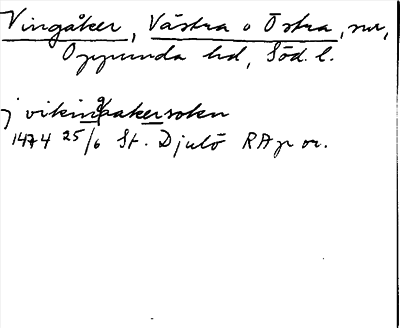 Vingåker, Västra o Östra, snr,
Oppunda hd, Söd. l.
j vikingaakersokn
1474 25/6 St. Djulö RAp or.